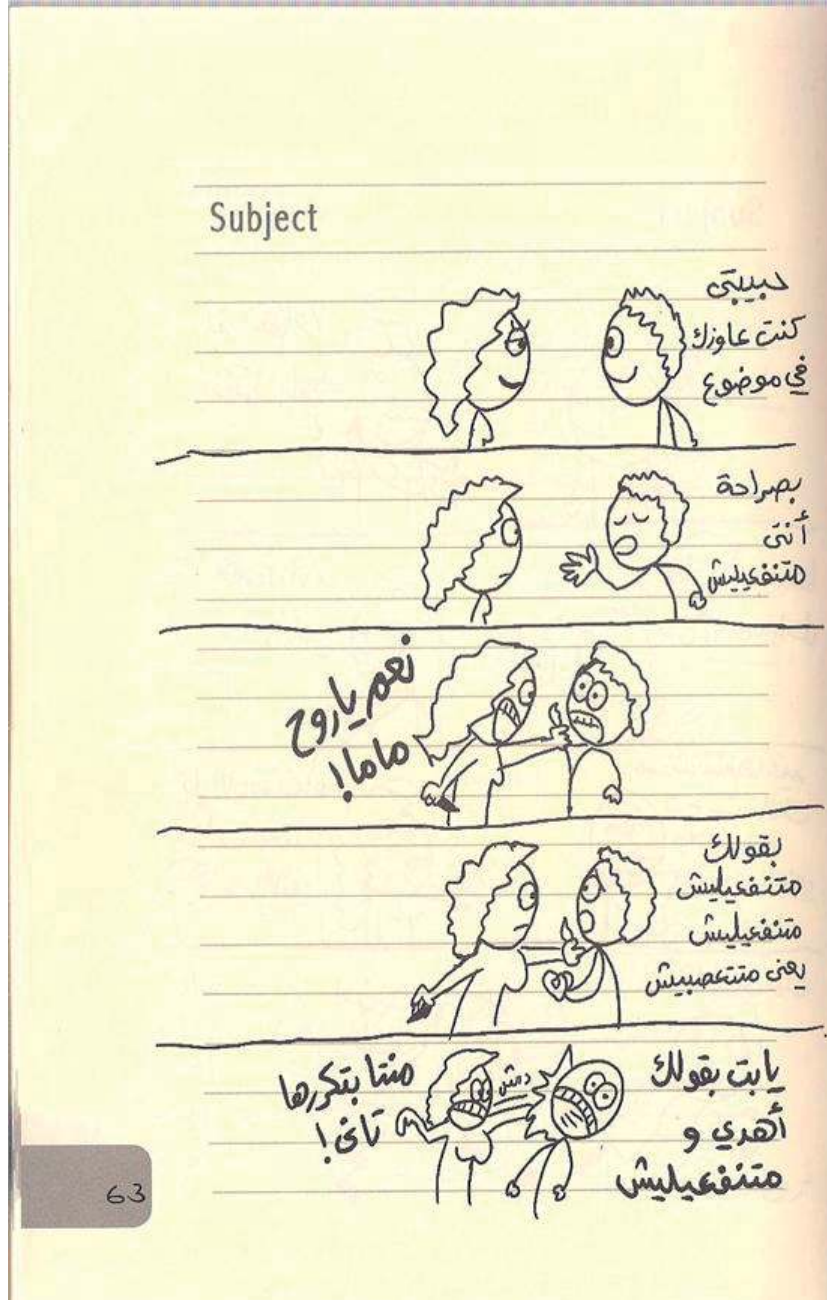 Subject
حبيبتى
كنت عاوزك
في موضوع
بصراحة
أنتى
متنفعيليش
نعم ياروح
ماما!
بقولك
متنفعيليش
متنفعيليش
يعنى متتعصبيش
يابت بقولك
أهدي و
متنفعيليش
منتا بتكررها
تانى!
63